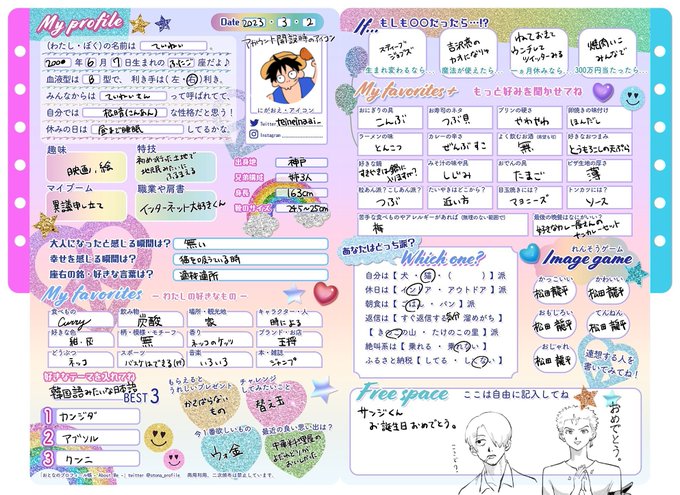 My profile
Date 2023・3・2
(わたし・ぼく)の名前は ていねい
2000年6月7日生まれのふたご座だよ♪
血液型はB型で、利き手は(左・右)利き。
みんなからは ていねいてん って呼ばれてて
自分では 松崎(こんあん) な性格だと思う!
休みの日は 昼まで睡眠 してるかな。
アカウント開設時のアイコン
にがおえ・アイコン
Twitter teineinaai_
Instagram
趣味
映画、絵
特技
初め求った土地で
地元民みたいに
ふるまえる
マイブーム
異議申し立て
職業や肩書
インターネット大好きくん
出身地 神戸
兄弟構成 姉3人
身長 163cm
靴のサイズ 24.5〜25cm
大人になったと感じる瞬間は? 無い
幸せを感じる瞬間は? 猫を吸っている時
座右の銘・好きな言葉は? 適材適所
My favorites ーわたしの好きなものー
食べもの Curry
飲み物 炭酸
場所・観光地 家
キャラクター・人 時による
好きな色 紺・灰
柄・模様・モチーフ 無
香り ネッコのケッツ
ブランド・お店 王将
どうぶつ ネッコ
スポーツ バスケはできる(?)
音楽 いろいろ
本・雑誌 ジャンプ
好きなテーマを入れてね
韓国語みたいな日本語
BEST3
1 カンジダ
2 アブソル
3 クンニ
もらえると
うれしいプレゼント
かさばらない
もの
チャレンジ
してみたいこと
替え玉
今1番欲しいもの
ウォ金
最近の良い思い出は?
中華料理屋の
よだれどりが
おいしかった
「おとなのプロフィール帳 - About Me -」twitter @otona_profile 商用利用、二次頒布は禁止しています。
If... もしも〇〇だったら…!?
スティーブ
ジョブズ
生まれ変わるなら…
吉沢亮の
カオになりて
魔法が使えたら…
ねておきて
ウンチして
ツイッターみる
一ヵ月休みなら…
焼肉いこ
みんなで
300万円当たったら…
My favorites+ もっと好みを聞かせてね
おにぎりの具 こんぶ
お寿司のネタ つぶ貝
プリンの硬さ やわやわ
卵焼きの味付け ほんだし
ラーメンの味 とんこつ
カレーの辛さ ぜんぶすこ
よく飲むお酒 無
好きなおつまみ とうもろこしの天ぷら
好きな鍋 すきやきは鍋に
入りますか?
みそ汁の味や具 しじみ
おでんの具 たまご
ピザ生地の厚さ 薄
粒あん派?こしあん派? つぶ
たいやきはどこから? 近い方
目玉焼きには? マヨニーズ
トンカツには? ソース
苦手な食べものやアレルギーがあれば(無理のない範囲で)
梅
最後の晩餐はなにがいい?
好きなカレー屋さんの
チーズカレーセット
あなたはどっち派?
Which one?
自分は【犬・猫・( )】派
休日は【インドア・アウトドア】派
朝食は【ごはん・パン】派
返信は【すぐ返信する・溜めがち】
【きのこの山・たけのこの里】派
絶叫系は【乗れる・乗れない】
ふるさと納税【してる・してない】
れんそうゲーム
Image game
かっこいい 松田龍平
かわいい 松田龍平
おもしろい 松田龍平
てんねん 松田龍平
おしゃれ 松田龍平
連想する人を
書いてみてね!
Free space ここは自由に記入してね
サンジくん
お誕生日おめでとう。
おめでとう。